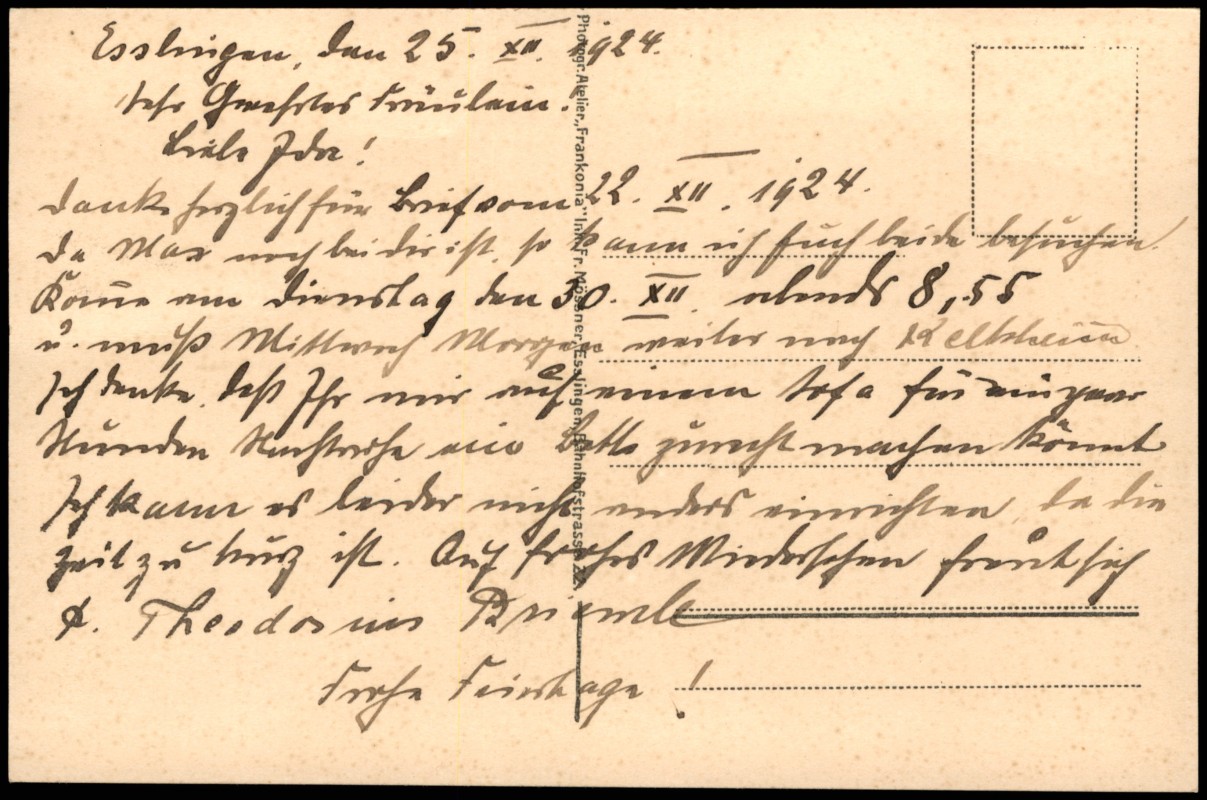 Esslingen, den 25. XII. 1924.
Sehr Geehrtes Fräulein!
Liebe Ida!
Danke herzlich für Brief vom 22. XII. 1924.
Da Max noch bei dir ist, so kann ich Euch beide besuchen.
Kom̄e am Dienstag den 30. XII. abends 8,55
u. muß Mittwoch Morgen weiter nach Kelkheim
Ich denke, daß Ihr mir auf einem Sofa für ein paar
Stunden Nachtruhe ein Bette zurecht machen könnt
Ich kann es leider nicht anders einrichten, da die
Zeit zu kurz ist. Auf frohes Wiedersehen freut sich
P. Theodosius Briemle
Frohe Feiertage!
Photogr. Atelier „Frankonia" Inh. Fr. Mössner, Esslingen, Bahnhofstrasse